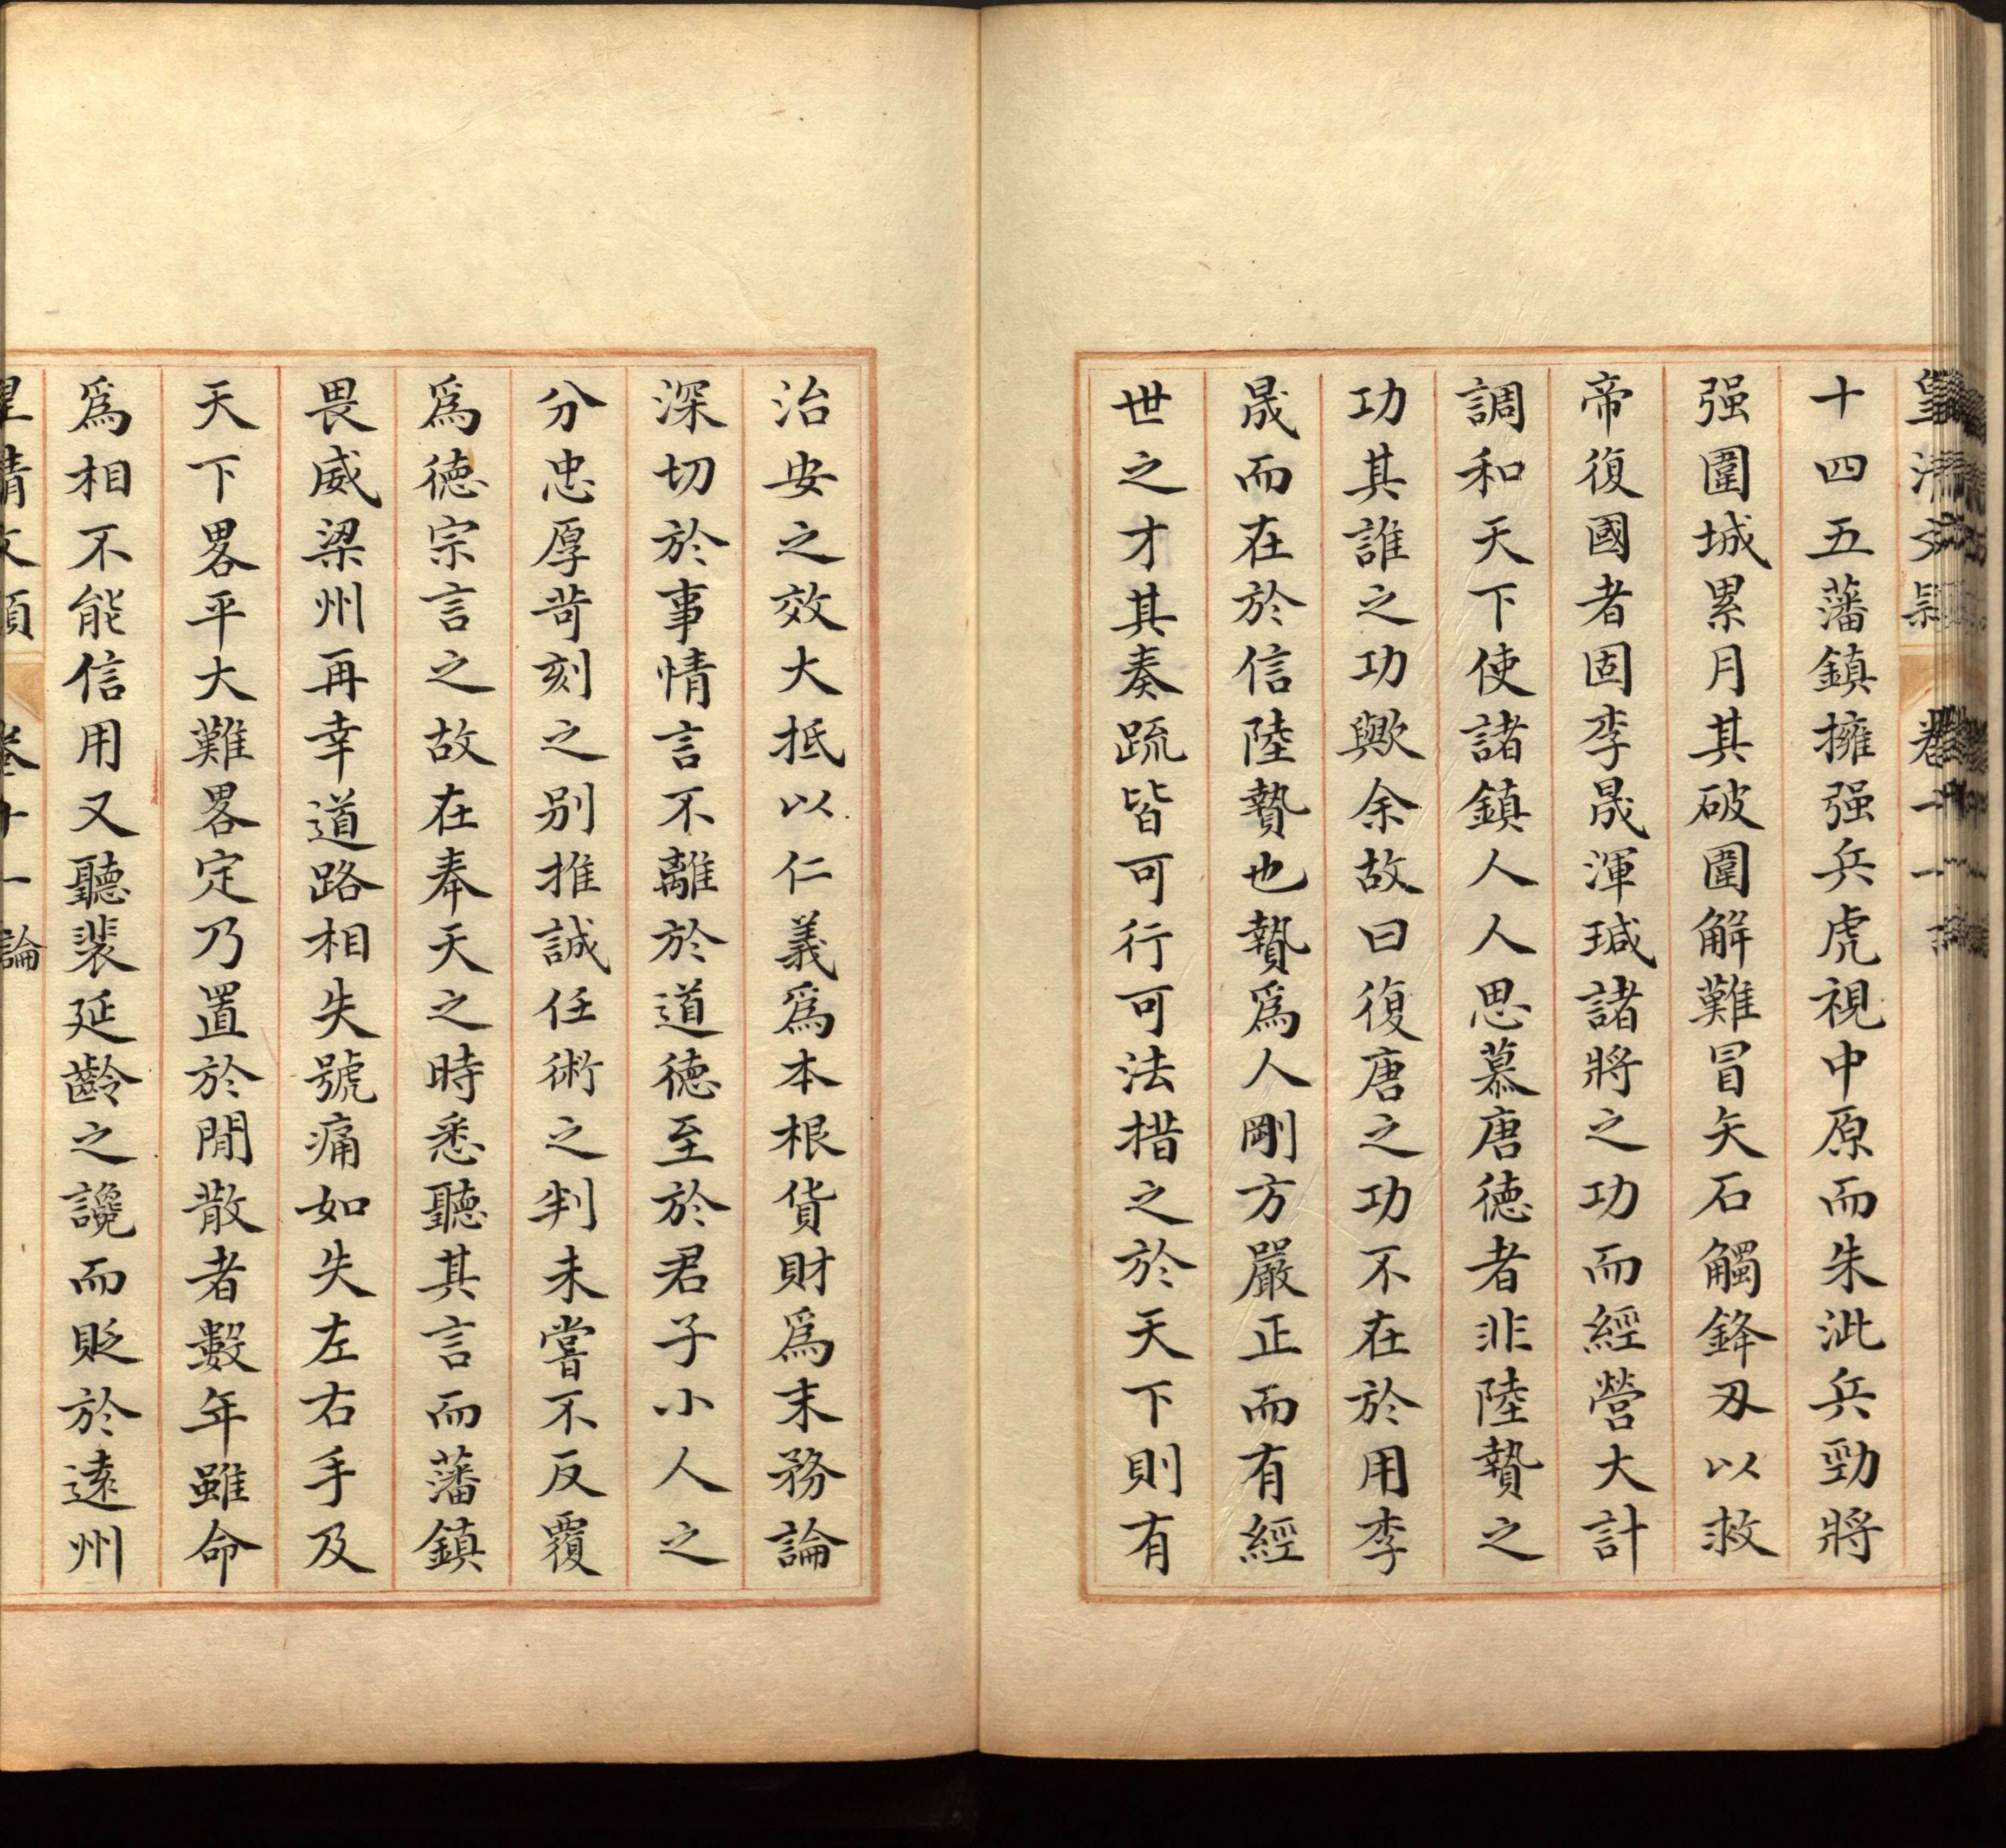 皇清文穎 卷十一
十四五藩鎮擁强兵虎視中原而朱泚兵勁將
强圍城累月其破圍解難冒矢石觸鋒刃以救
帝復國者固李晟渾瑊諸將之功而經營大計
調和天下使諸鎮人人思慕唐德者非陸贄之
功其誰之功歟余故曰復唐之功不在於用李
晟而在於信陸贄也贄爲人剛方嚴正而有經
世之才其奏疏皆可行可法措之於天下則有
治安之效大抵以仁義爲本根貨財爲末務論
深切於事情言不離於道德至於君子小人之
分忠厚苛刻之别推誠任術之判未嘗不反覆
爲德宗言之故在奉天之時悉聽其言而藩鎮
畏威梁州再幸道路相失號痛如失左右手及
天下畧平大難畧定乃置於閒散者數年雖命
爲相不能信用又聽裴延齡之讒而貶於遠州
皇清文穎 卷十一 論